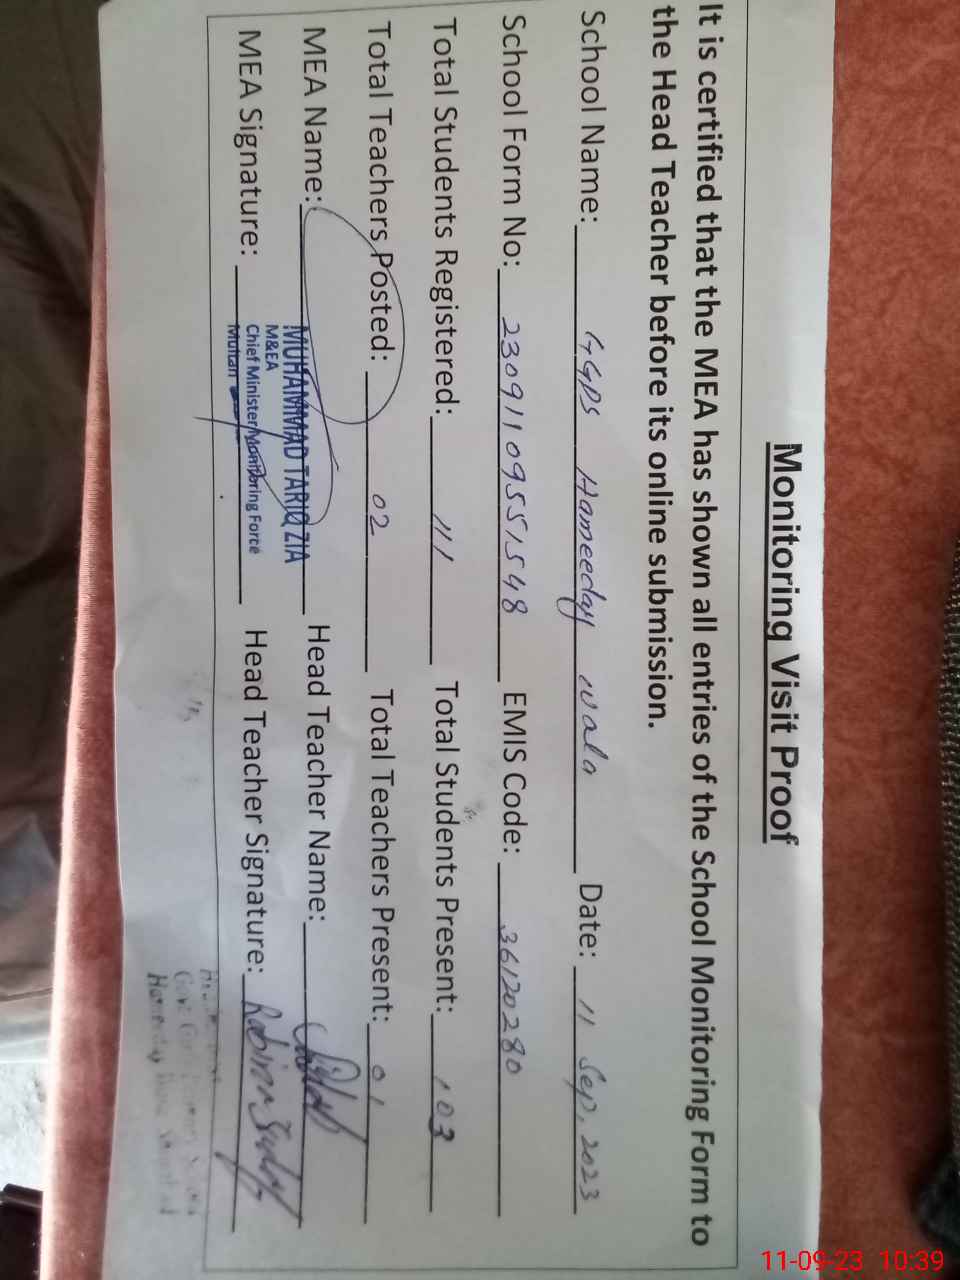 Monitoring Visit Proof
It is certified that the MEA has shown all entries of the School Monitoring Form to
the Head Teacher before its online submission.
School Name: GGPS Hameeday wala Date: 11 Sep, 2023
School Form No: 23091109551548 EMIS Code: 36120280
Total Students Registered: 111 Total Students Present: 103
Total Teachers Posted: 02 Total Teachers Present: 01
MEA Name: MUHAMMAD TARIQ ZIA Head Teacher Name:
M&EA
MEA Signature: Chief Minister Monitoring Force Head Teacher Signature:
Multan
11-09-23 10:39